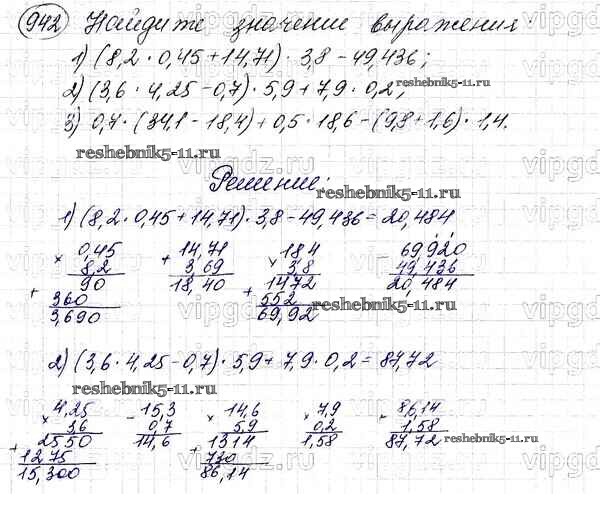 942 Найдите значение выражения
1) (8,2 · 0,45 + 14,71) · 3,8 - 49,436;
2) (3,6 · 4,25 - 0,7) · 5,9 + 7,9 · 0,2;
reshebnik5-11.ru
3) 0,7 · (34,1 - 18,4) + 0,5 · 18,6 - (9,8 + 1,6) · 1,4.
reshebnik5-11.ru
Решение:
reshebnik5-11.ru
1) (8,2 · 0,45 + 14,71) · 3,8 - 49,436 = 20,484
× 0,45 + 14,71 × 18,4 69,920
8,2 3,69 3,8 49,436
90 18,40 1472 20,484
+ 360 + 552
3,690 69,92
2) (3,6 · 4,25 - 0,7) · 5,9 + 7,9 · 0,2 = 87,72
reshebnik5-11.ru
× 4,25 - 15,3 × 14,6 × 7,9 86,14
3,6 0,7 5,9 0,2 1,58
2550 14,6 1314 1,58 87,72
reshebnik5-11.ru
+ 1275 730
15,300 86,14
vipgdz.ru